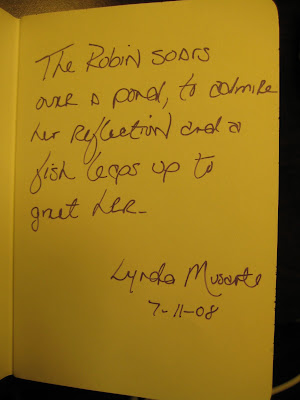 The Robin soars
over a pond, to admire
her reflection and a
fish leaps up to
greet her-
Lynda
7-11-08